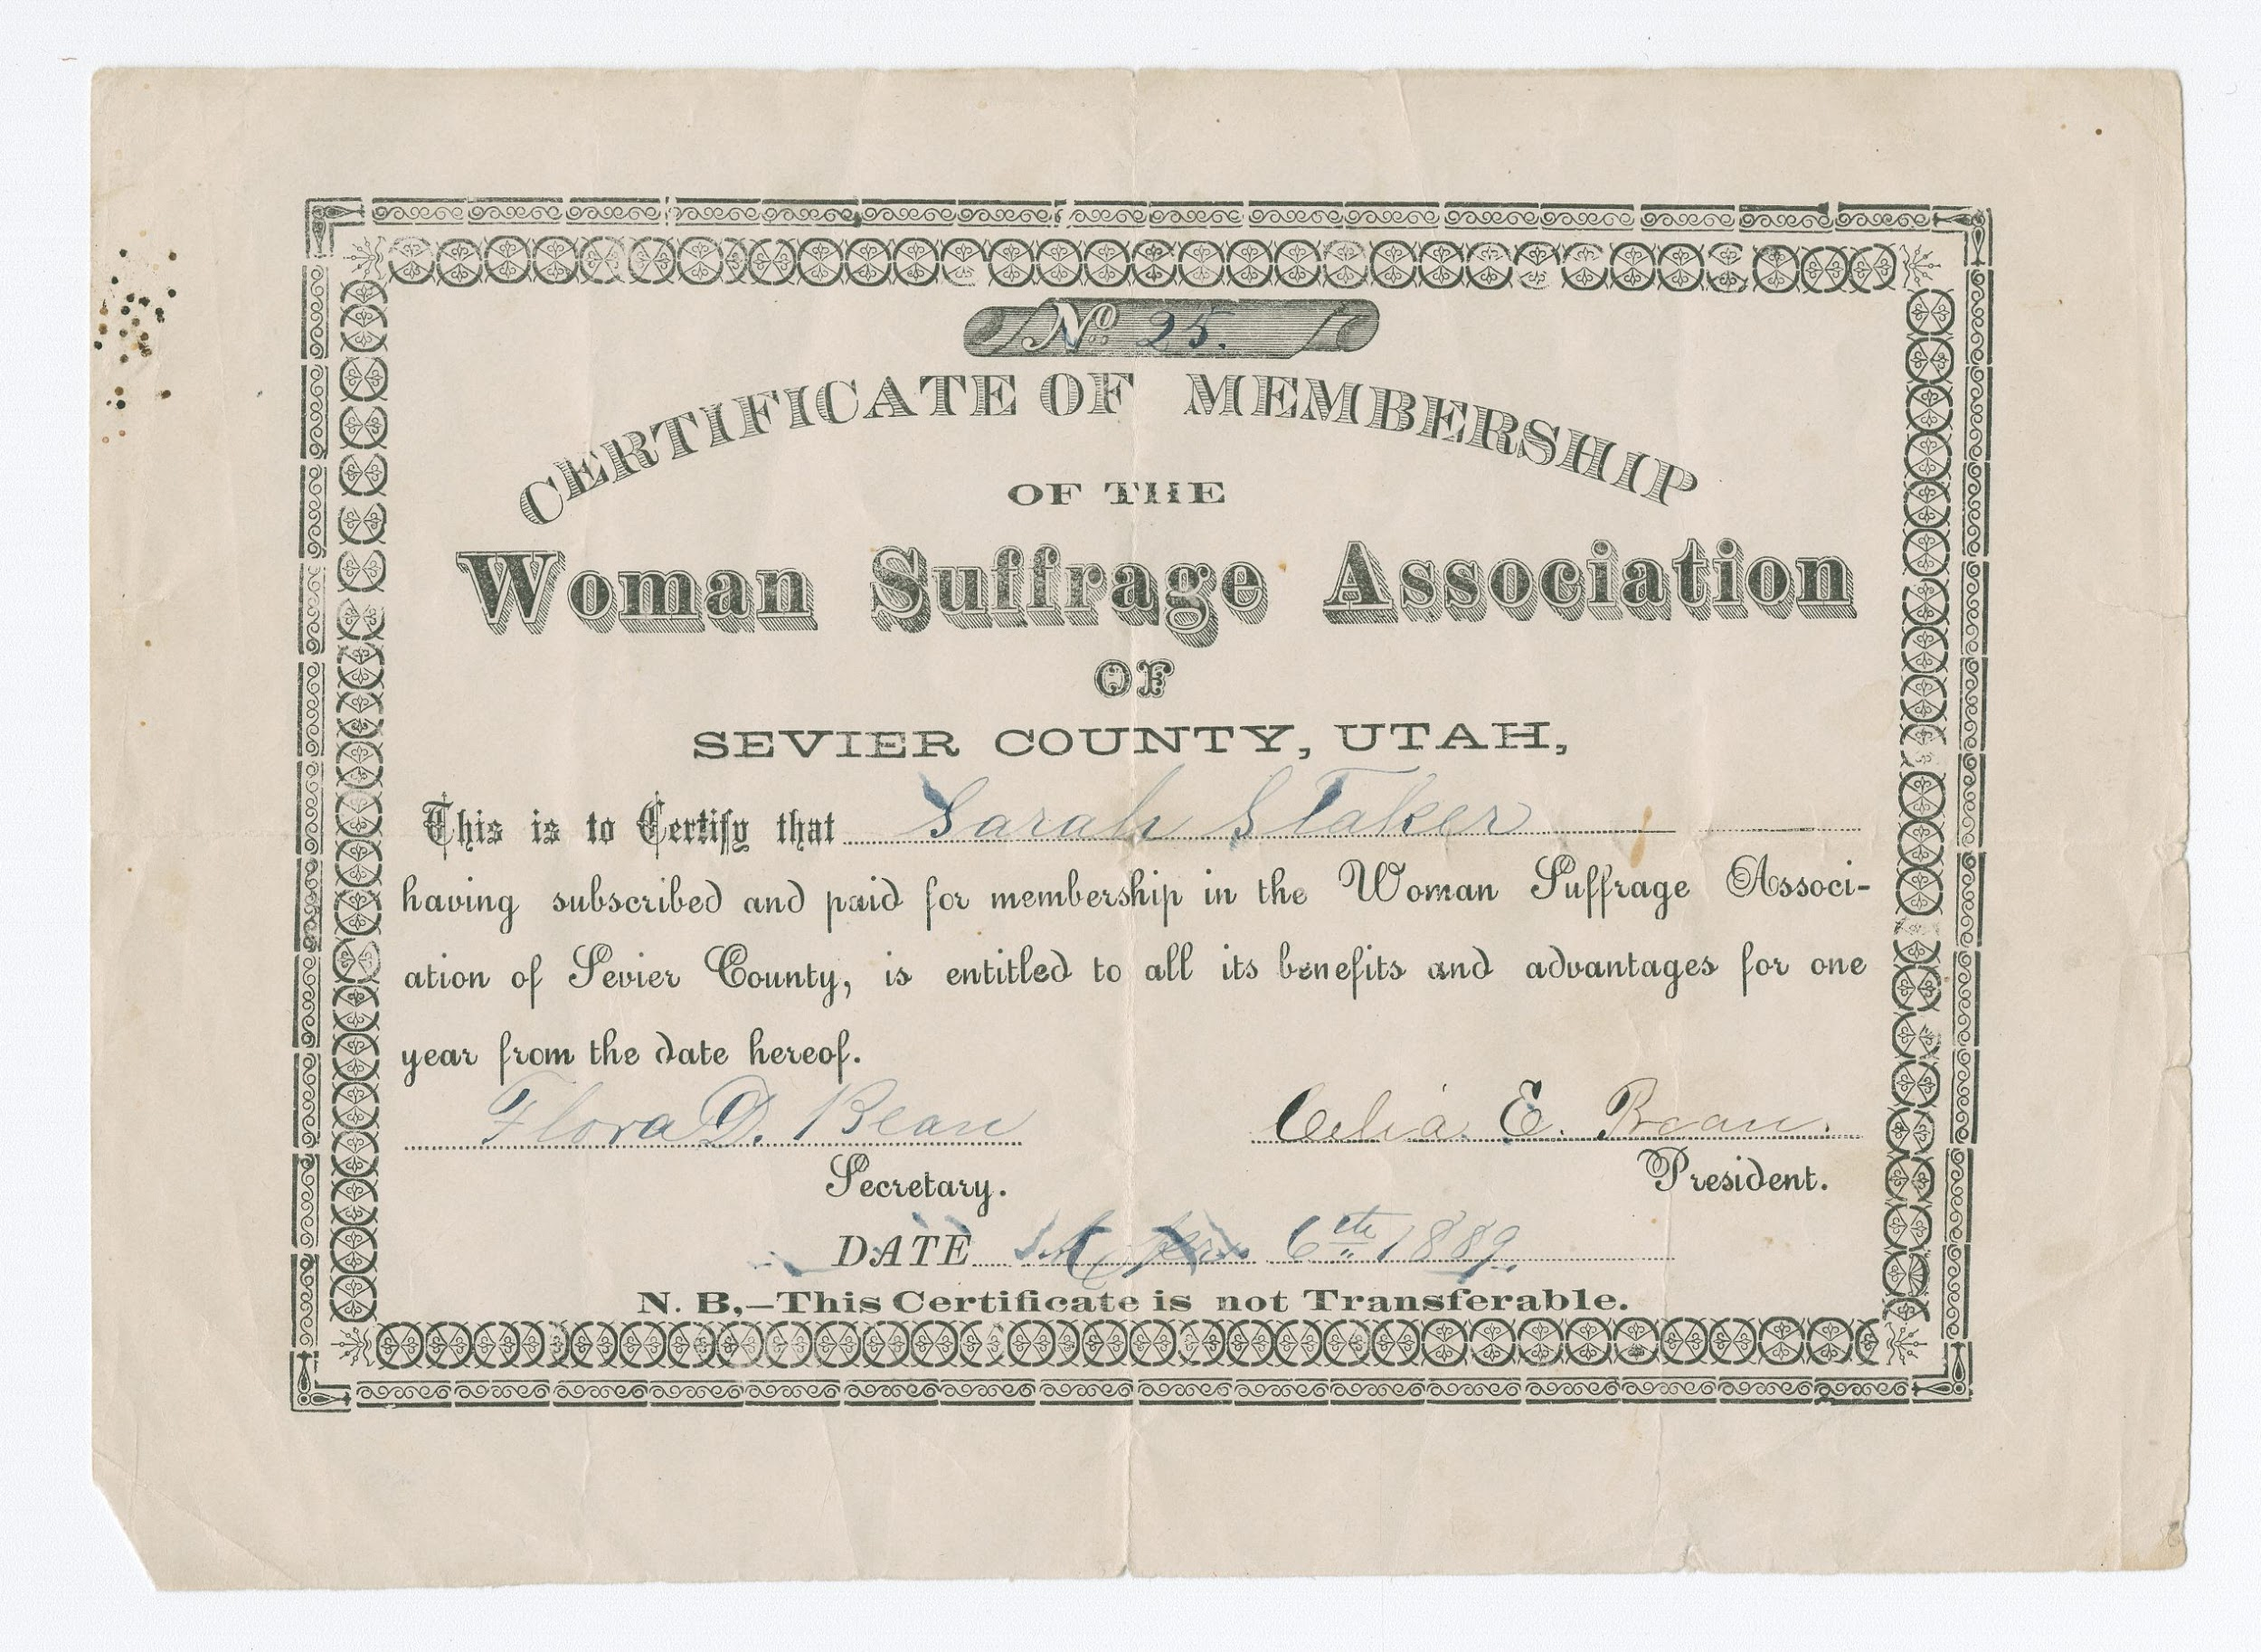 No. 25.
CERTIFICATE OF MEMBERSHIP
OF THE
Woman Suffrage Association
OF
SEVIER COUNTY, UTAH,
This is to Certify that Sarah Staker
having subscribed and paid for membership in the Woman Suffrage Associ-
ation of Sevier County, is entitled to all its benefits and advantages for one
year from the date hereof.
Flora D. Bean Celia E. Bean.
Secretary. President.
DATE 6th 1889.
N. B,—This Certificate is not Transferable.